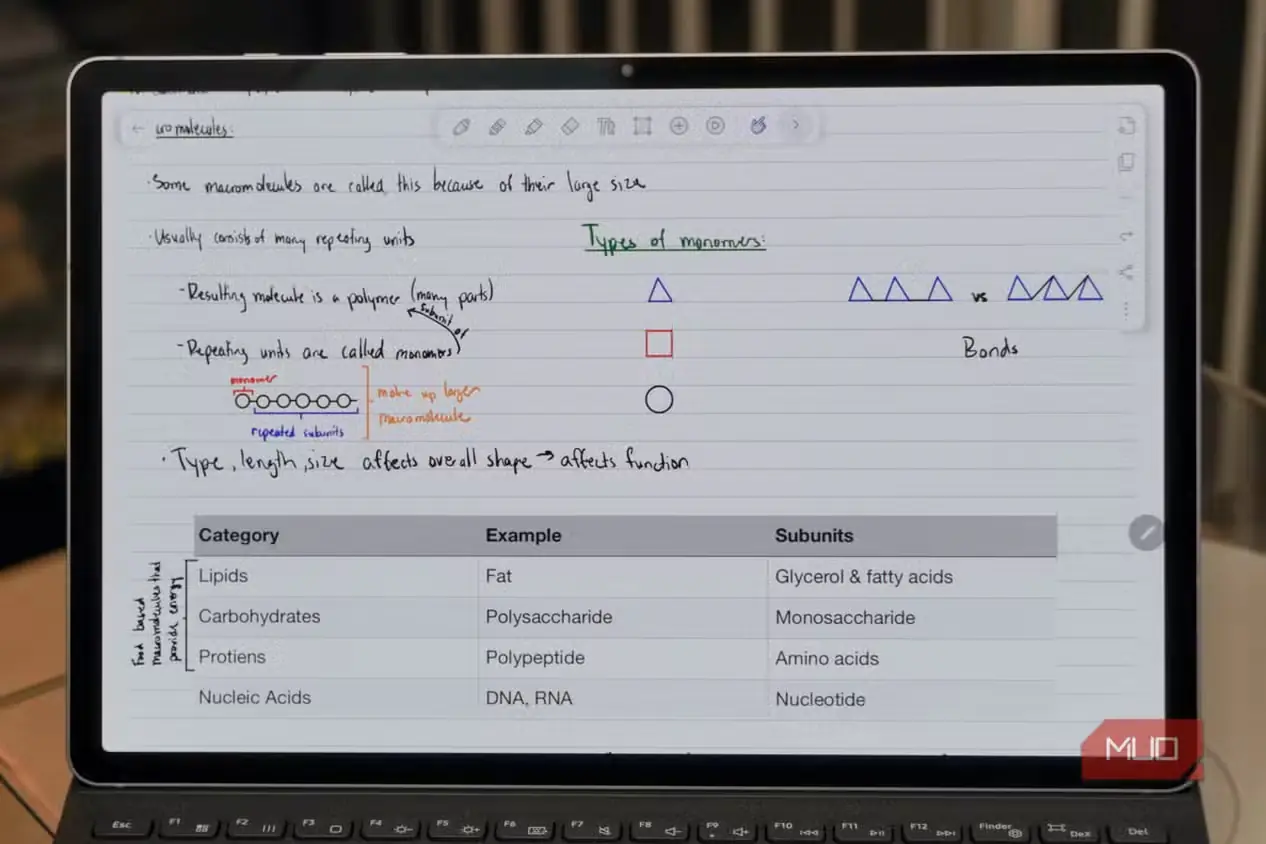 uromolecules:
· Some macromolecules are called this because of their large size
· Usually consists of many repeating units
Types of monomers:
- Resulting molecule is a polymer (many parts)
subunit of
vs
- Repeating units are called monomers
Bonds
monomer
make up larger
macromolecule
repeated subunits
· Type, length, size affects overall shape → affects function
Category Example Subunits
Lipids Fat Glycerol & fatty acids
Carbohydrates Polysaccharide Monosaccharide
Protiens Polypeptide Amino acids
Nucleic Acids DNA, RNA Nucleotide
Food based
macromolecules that
provide energy
MUO
Esc F1 F2 F3 F4 F5 F6 F7 F8 F9 F10 F11 F12 Finder Dex Del